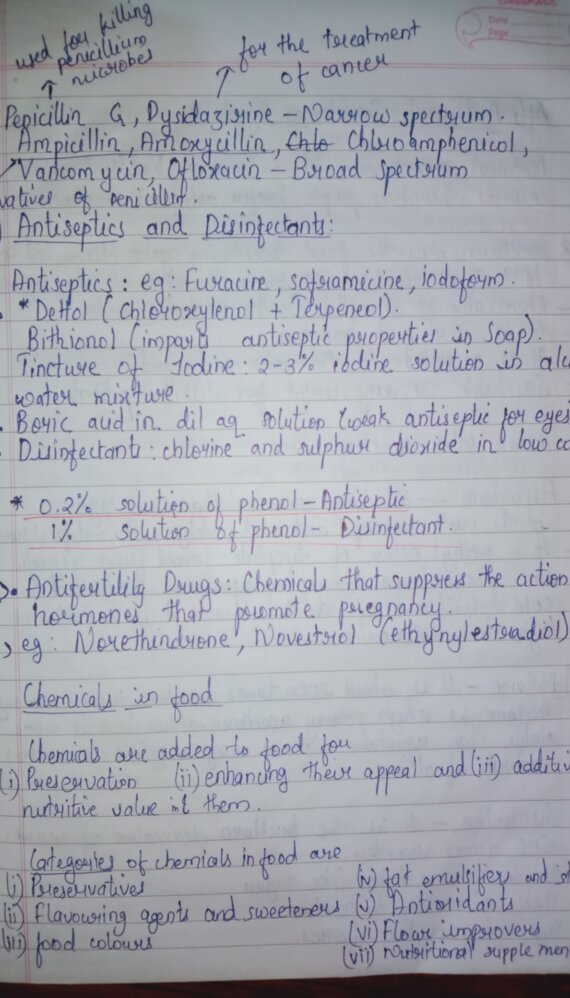 used for killing
penicillium
microbes
for the treatment
of cancer
Date
Page
Penicillin G, Dysidazirine – Narrow spectrum.
Ampicillin, Amoxycillin, Chlo Chloroamphenicol,
Vancomycin, Ofloxacin – Broad Spectrum
vatives of penicillin.
Antiseptics and Disinfectants:
Antiseptics : eg: Furacine, soframicine, iodoform.
* Dettol (Chloroxylenol + Terpeneol).
Bithionol (imparts antiseptic properties in Soap).
Tincture of Iodine: 2-3% iodine solution in alc
water mixture.
Boric acid in dil aq solution (weak antiseptic for eyes
Disinfectants : chlorine and sulphur dioxide in low co
* 0.2% solution of phenol – Antiseptic
1% solution of phenol – Disinfectant.
Antifertility Drugs: Chemicals that suppress the action
hormones that promote pregnancy.
eg: Norethindrone, Novestrol (ethynylestradiol)
Chemicals in food
Chemicals are added to food for
(i) Preservation (ii) enhancing their appeal and (iii) additi
nutritive value in them.
Categories of chemicals in food are
(i) Preservatives (iv) fat emulsifiers and st
(ii) Flavouring agents and sweeteners (v) Antioxidants
(iii) food colours (vi) Flour improvers
(vii) nutritional supplemen